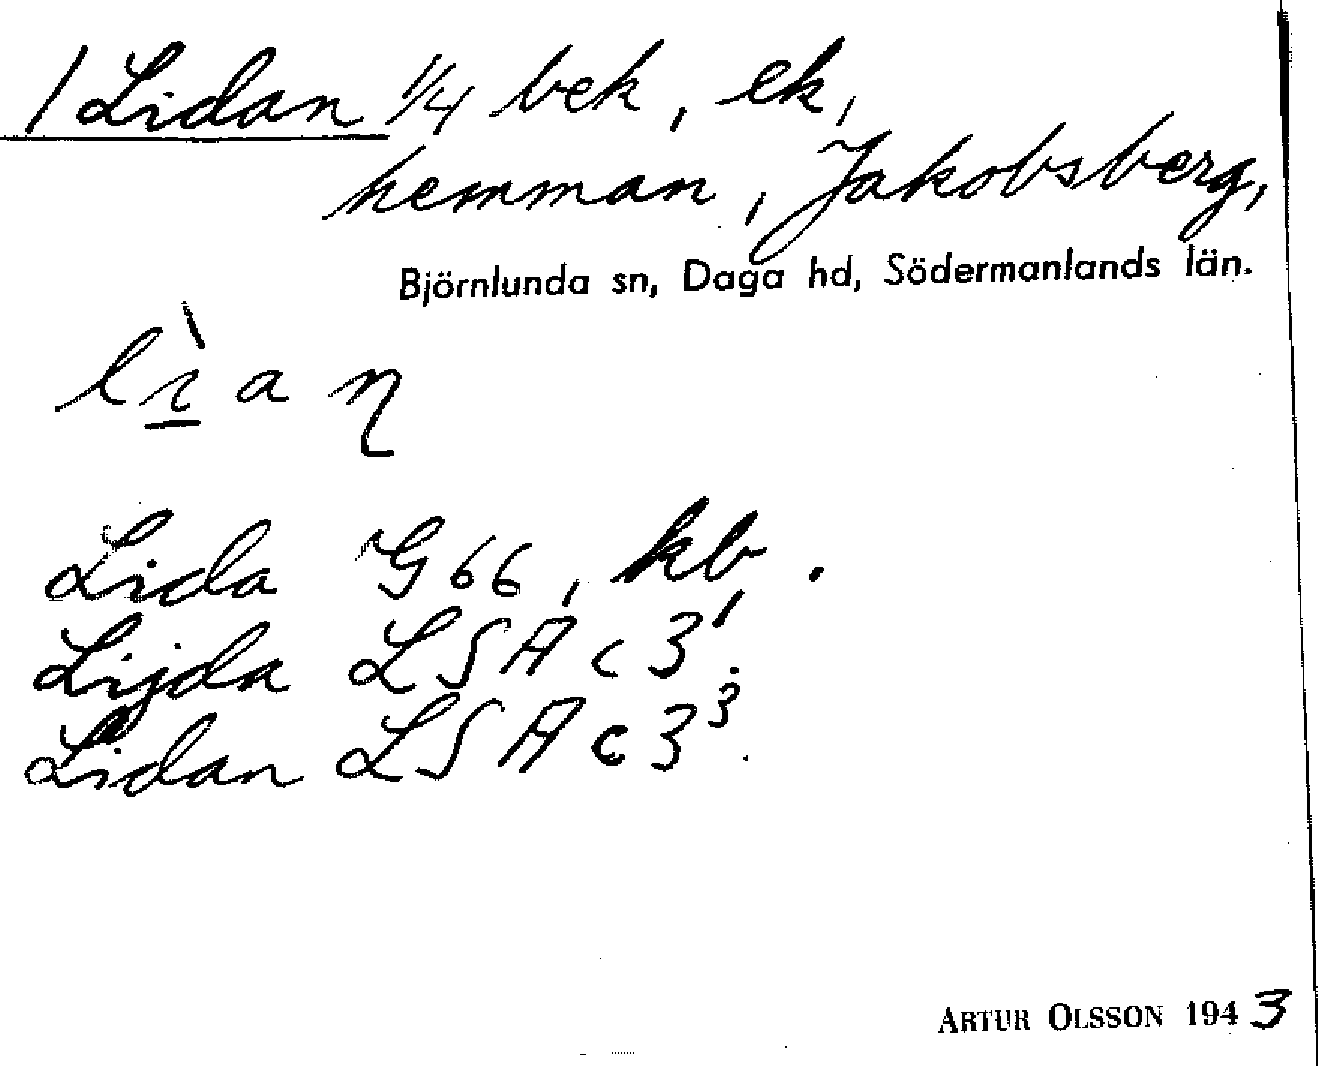 / Lidan 1/4 bek, ek,
hemman, Jakobsberg,
Björnlunda sn, Daga hd, Södermanlands län.
lìan
Lida G 66, kb.
Lijda LSA c 3¹.
Lidan LSA c 3³.
ARTUR OLSSON 1943